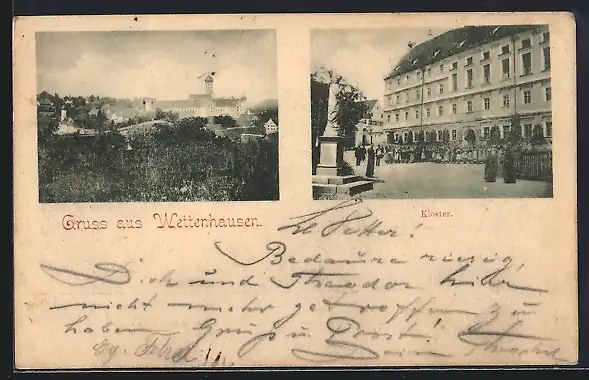 Gruss aus Wettenhausen.
Kloster.
L. Vetter!
Bedaure riesig,
Dich und Theodor hier
nicht mehr getroffen zu
haben Gruß u. Prost!
Dein